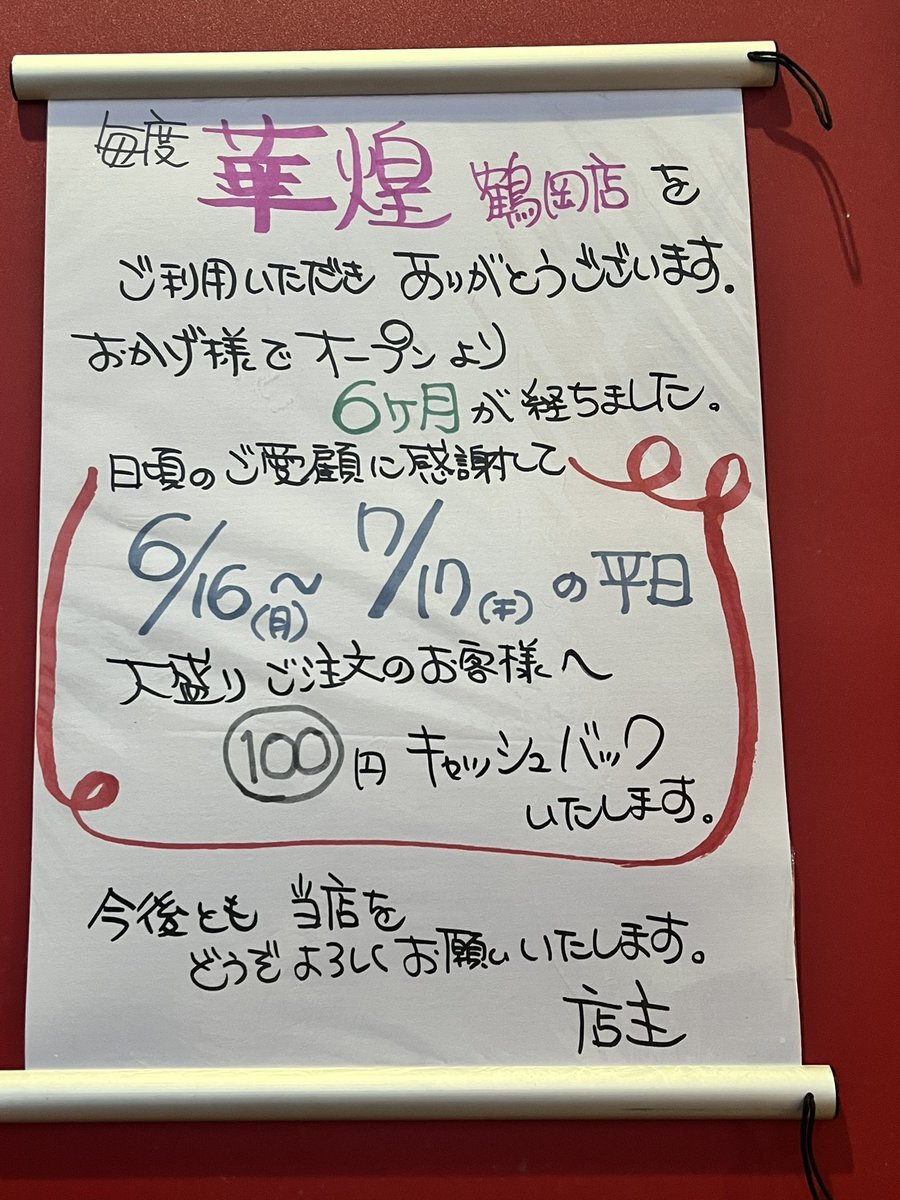 毎度 華煌 鶴岡店 を
ご利用いただき ありがとうございます。
おかげ様で オープンより
6ヶ月が 経ちました。
日頃の ご愛顧に感謝して
6/16(月)〜 7/17(木)の 平日
大盛り ご注文のお客様へ
100円 キャッシュバック
いたします。
今後とも 当店を
どうぞよろしくお願いいたします。
店主